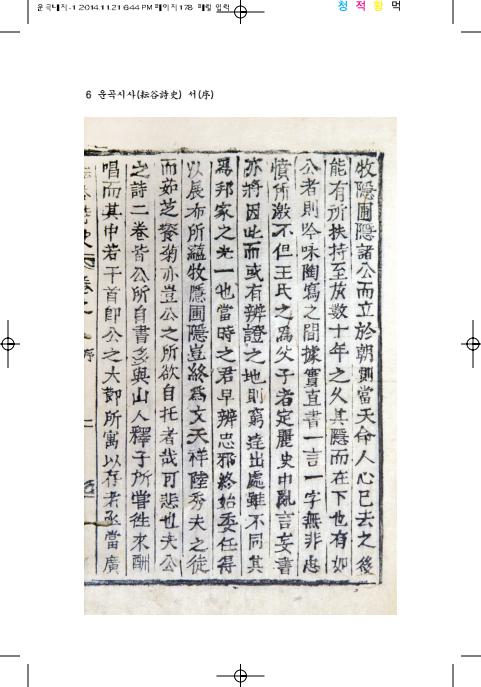 운곡대지-1 2014.11.21 6:44 PM 페이지178 매킬 입력
청 적 황 먹
6 운곡시사(耘谷詩史) 서(序)
牧隱圃隱諸公而立於朝則當天命人心已去之後
能有所扶持至於數十年之久其隱而在下也有如
公者則吟咏陶寫之間據實直書一言一字無非忠
憤所激不但王氏之爲父子者定麗史中亂言妄書
亦將因此而或有辨證之地則窮達出處雖不同其
爲邦家之光一也當時之君早辨忠邪終始委任得
以展布所蘊牧隱圃隱豈終爲文天祥陸秀夫之徒
而茹芝餐菊亦豈公之所欲自托者哉可悲也夫公
之詩二卷皆公所自書多與山人釋子所嘗徃來酬
唱而其中若干首即公之大節所寓以存者亟當廣